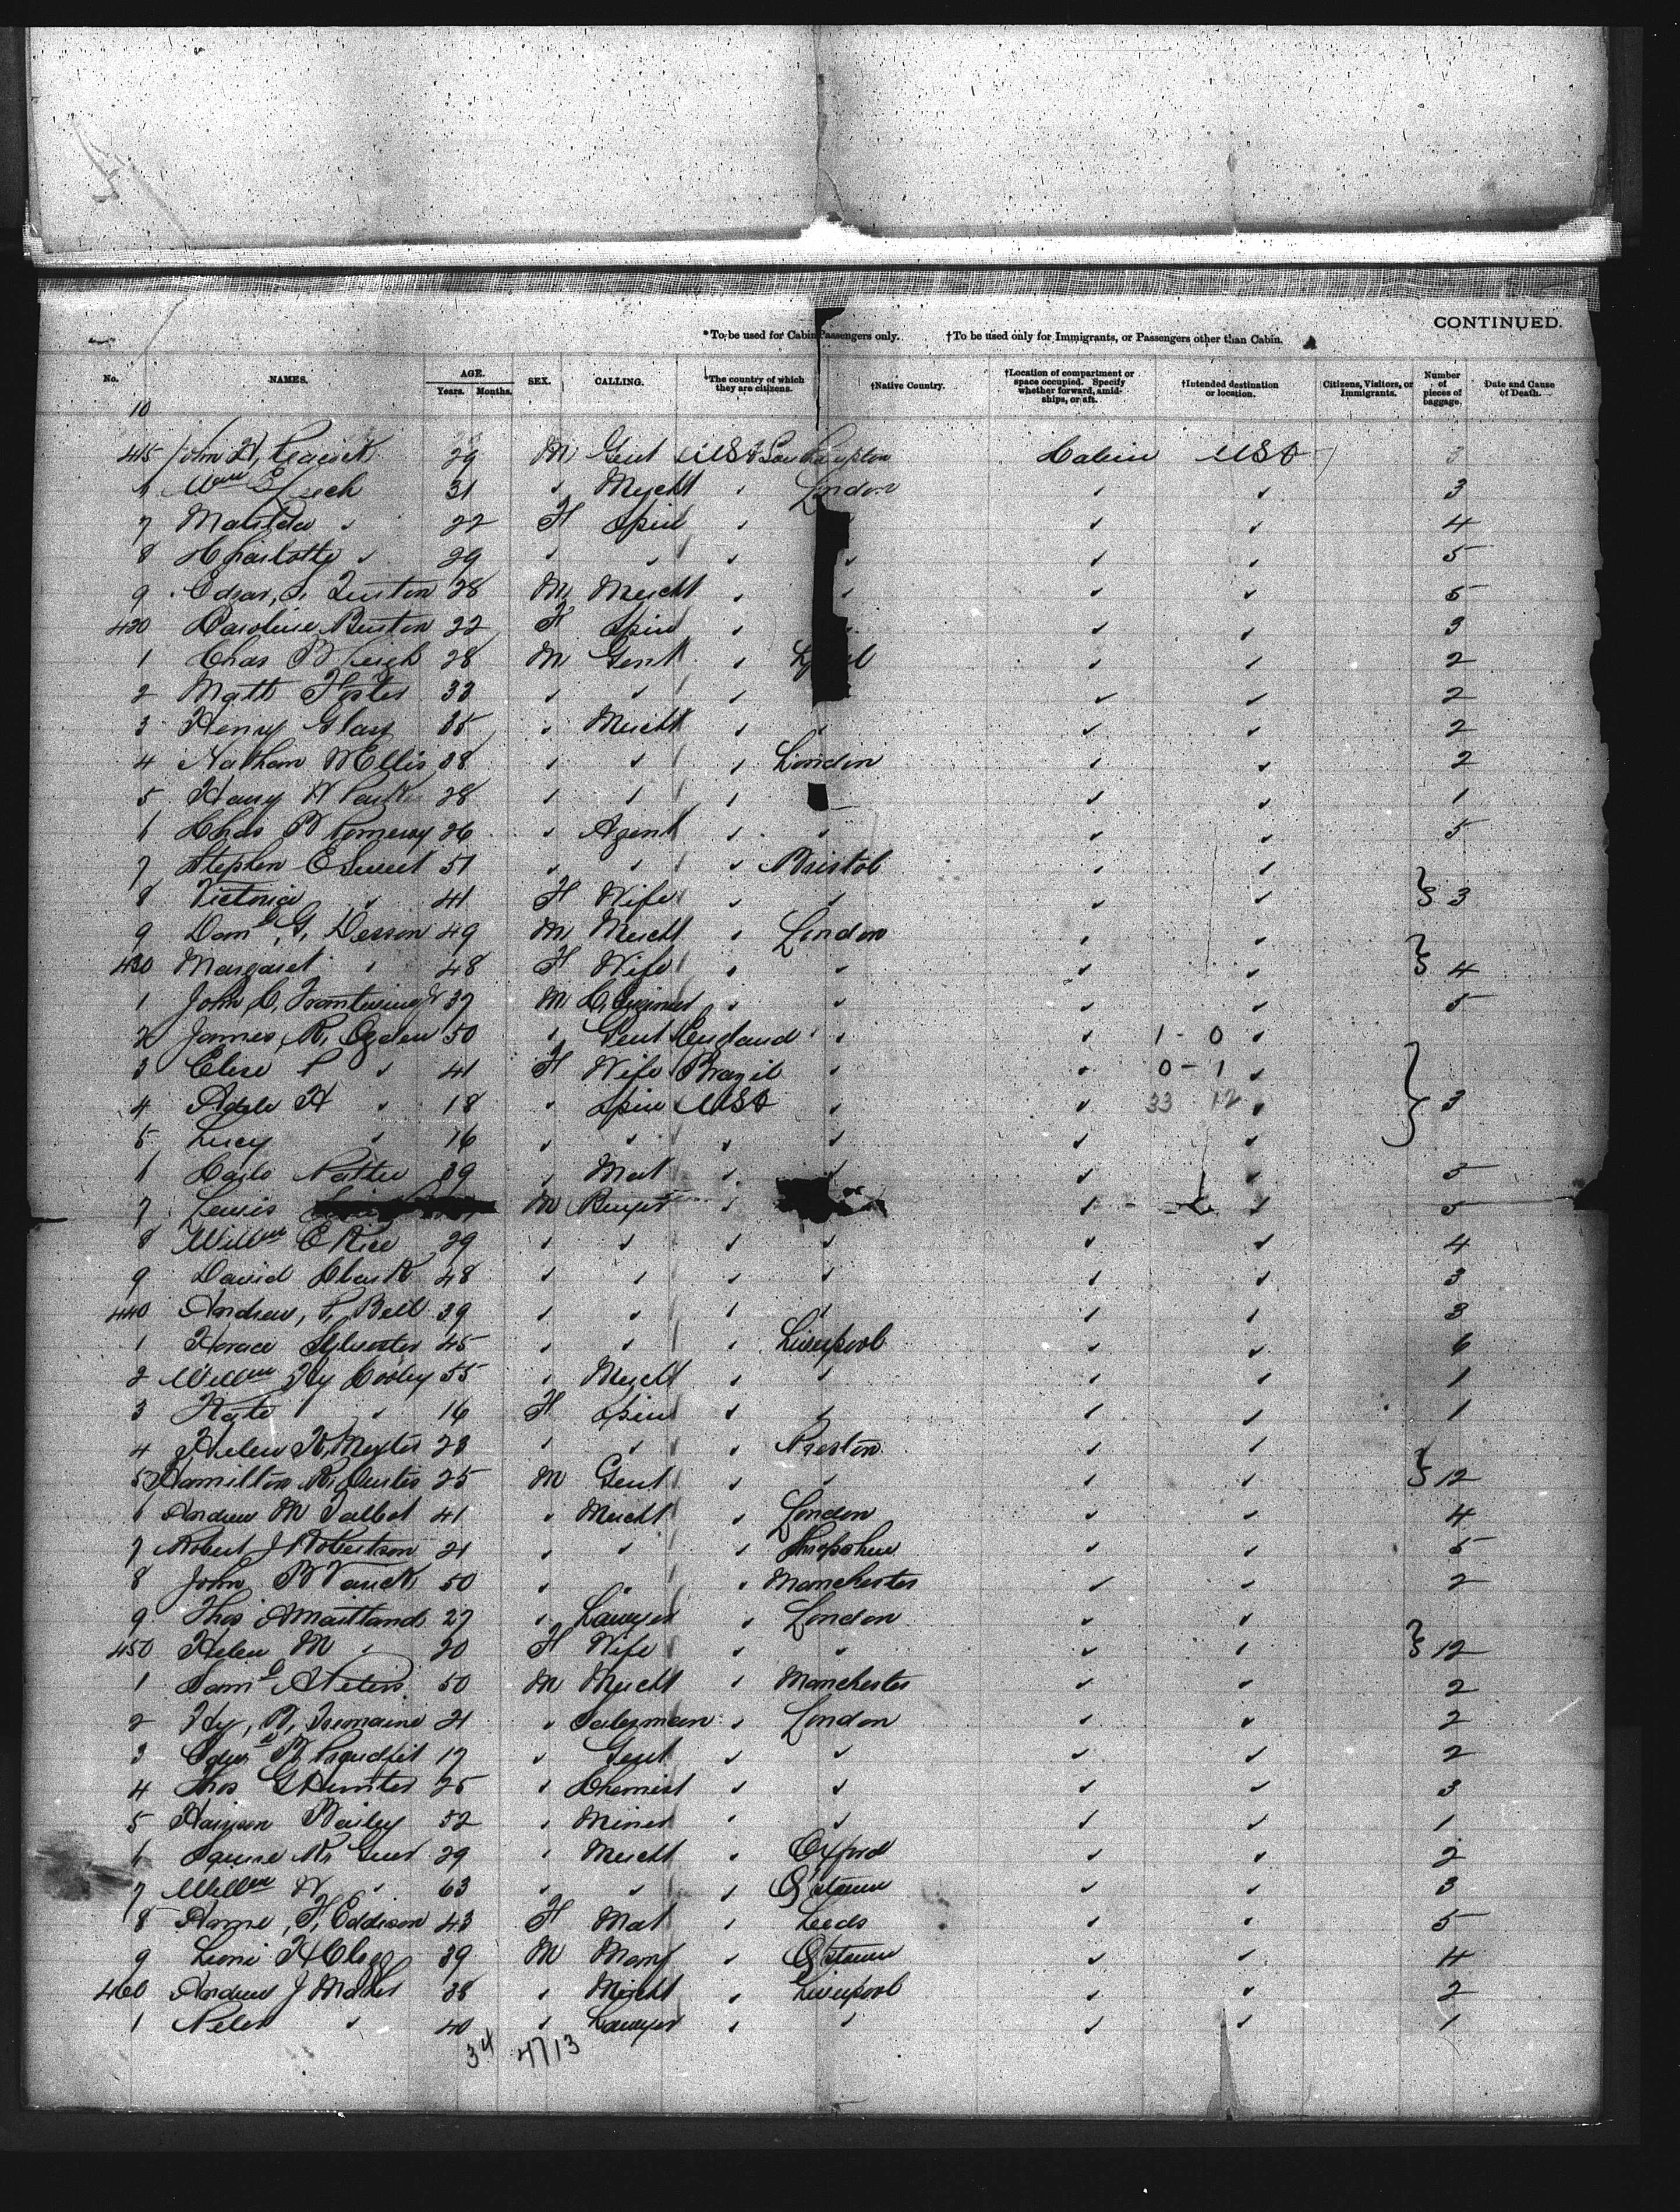 CONTINUED.
*To be used for Cabin Passengers only. †To be used only for Immigrants, or Passengers other than Cabin.
No. NAMES. AGE. Years. Months. SEX. CALLING. *The country of which they are citizens. †Native Country. †Location of compartment or space occupied. Specify whether forward, amidships, or aft. †Intended destination or location. Citizens, Visitors, or Immigrants. Number of pieces of baggage. Date and Cause of Death.
10
415 John H, Peacock 29 M Gent USA Southampton Cabin USA
6 Wm E Leech 31 " Mercht " London " " 3
7 Matilda " 22 F Spin " " " 4
8 Charlotte " 29 " " " " " " 5
9 Edgar, S, 28 M Mercht " " " " 5
420 Caroline Buston 22 F Spin " " " 3
1 Chas B Leigh 28 M Gent " " " 2
2 Matt Foster 33 " " " " " 2
3 Henry Glass 35 " Mercht " " " " 2
4 Nathan M Ellis 38 " " " London " " 2
5 Harry W 28 " " " " " 1
6 Chas B Pomeroy 26 " Agent " " " " 5
7 Stephen E Sweet 51 " " " Bristol " "
8 Victoria " 41 F Wife " " " " } 3
9 Danl, G, 49 M Mercht " London " "
430 Margaret " 48 F Wife " " " " } 4
1 John C, 37 M C. Engineer " " " " 5
2 James, R, Ogden 50 " Gent England " " 1 - 0 "
3 Elise P " 41 F Wife Brazil " " 0 - 1 "
4 Adele H " 18 " Spin USA " " 33 12 " } 3
5 Lucy " 16 " " " " " "
6 39 " Mat " " " " 5
7 Lewis M Buyer " " " 5
8 Willm E Rice 29 " " " " " " 4
9 David Clark 48 " " " " " " 3
440 Andrew, P, Bell 39 " " " " " " 3
1 Horace Sylvester 45 " " " Liverpool " " 6
2 Willm Hy Cooley 55 " Mercht " " " " 1
3 Kate " 16 F Spin " " " " 1
4 Helen 23 " " " Preston " "
5 Hamilton R, Curtis 25 M Gent " " " " } 12
6 Andrew M Talbot 41 " Mercht " London " " 4
7 Robert J Robertson 21 " " " Shropshire " " 5
8 John B 50 " " " Manchester " " 2
9 Thos A Maitland 27 " Lawyer " London " "
450 Helen M " 20 F Wife " " " " } 12
1 Saml A Peters 50 M Mercht " Manchester " " 2
2 Hy, B, Tremaine 21 " Salesman " London " " 2
3 Edwd B Proudfit 17 " Gent " " " " 2
4 Thos G Hunter 25 " Chemist " " " " 3
5 Harrison Bailey 52 " Miner " " " " 1
6 29 " Mercht " Oxford " " 2
7 Willm W " 63 " " " " " 3
8 Annie, F, Eddison 43 F Mat " Leeds " " 5
9 H Clegg 39 M Manf " " " 4
460 Andrew J 38 " Mercht " Liverpool " " 2
1 Peter " 40 " Lawyer " " " " 1
34 4713